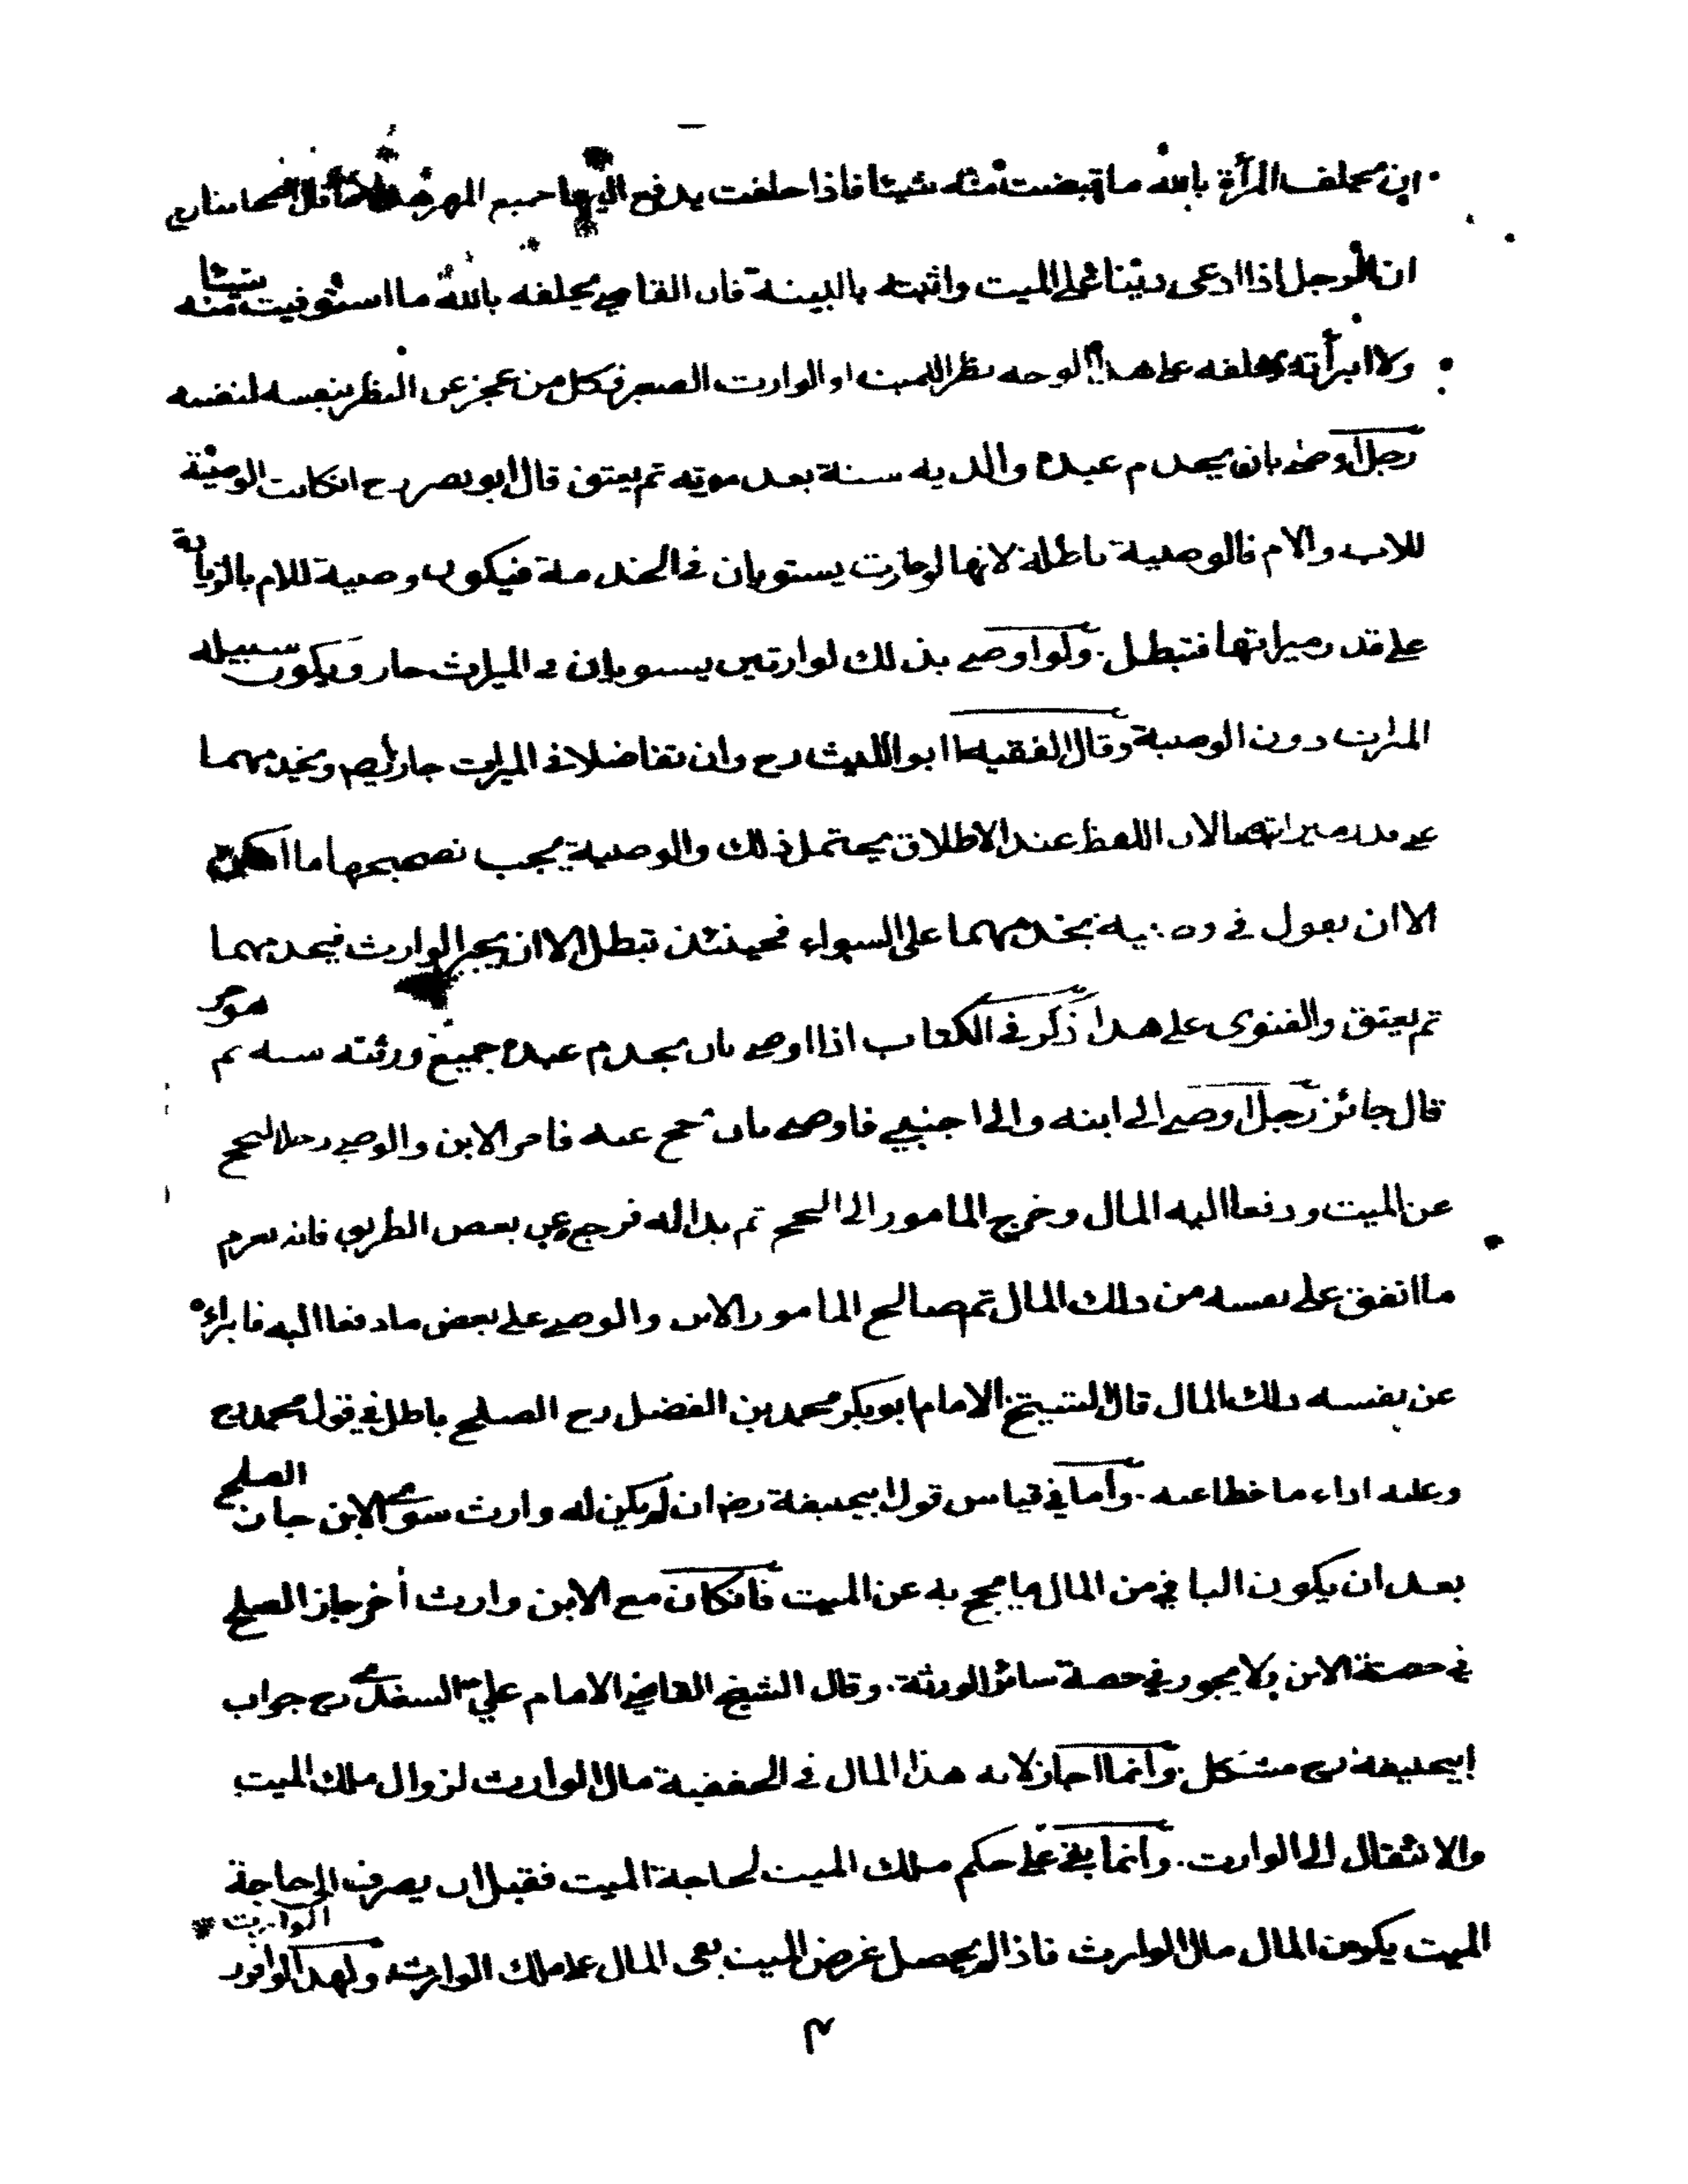 ان يحلف المرأة بالله ما قبضت منه شيئا فاذا حلفت يدفع اليها جميع المهر
ان الرجل اذا ادعى دينا على الميت واثبته بالبينة فان القاضي يحلفه بالله ما استوفيت منه شيئا
ولا ابرأته يحلفه على هذا الوجه نظرا للميت او الوارث الصغير فكل من عجز عن النظر بنفسه لنفسه
رجل اوصى بان يخدم عبده والديه سنة بعد موته ثم يعتق قال ابو نصر رح ان كانت الوصية
للاب والام فالوصية باطلة لانها لو جازت يستويان في الخدمة فيكون وصية للام بالزيادة
على قدر ميراثها فتبطل. ولو اوصى بذلك لوارثين يستويان في الميراث جاز ويكون سبيله
الميراث دون الوصية وقال الفقيه ابو الليث رح وان تفاضلا في الميراث جاز ويخدمهما
على قدر ميراثهما لان اللفظ عند الاطلاق يحتمل ذلك والوصية يجب تصحيحها ما امكن
الا ان يقول في وصيته يخدمهما على السواء فحينئذ تبطل الا ان يجيز الوارث فيخدمهما
ثم يعتق والفتوى على هذا ذكر في الكتاب اذا اوصى بان يخدم عبده جميع ورثته سنة ثم هو حر
قال جائز رجل اوصى الى ابنه والى اجنبي فاوصى بان يحج عنه فامر الابن والوصي رجلا ليحج
عن الميت ودفعا اليه المال وخرج المامور الى الحج ثم بدا له فرجع عن بعض الطريق فانه يغرم
ما انفق على نفسه من ذلك المال ثم صالح المامور الابن والوصي على بعض ما دفعا اليه فابراه
عن نفسه ذلك المال قال الشيخ الامام ابو بكر محمد بن الفضل رح الصلح باطل في قول محمد رح
وعليه اداء ما خطا عنه. واما في قياس قول ابيحنيفة رض ان لم يكن له وارث سوى الابن جاز الصلح
بعد ان يكون الباقي من المال ما يحج به عن الميت فان كان مع الابن وارث أخر جاز الصلح
في حصة الابن ولا يجوز في حصة سائر الورثة. وقال الشيخ القاضي الامام علي السغدى رح جواب
ابيحنيفة رح مشكل. وانما اجاز لانه هذا المال في الحقيقة مال الوارث لزوال ملك الميت
والانتقال الى الوارث. وانما بقي على حكم ملك الميت لحاجة الميت فقبل ان يصرف الى حاجة
الميت يكون المال مال الوارث فاذا لم يحصل غرض الميت بقى المال على ملك الوارث ولهذا لو اقر الوارث
٣